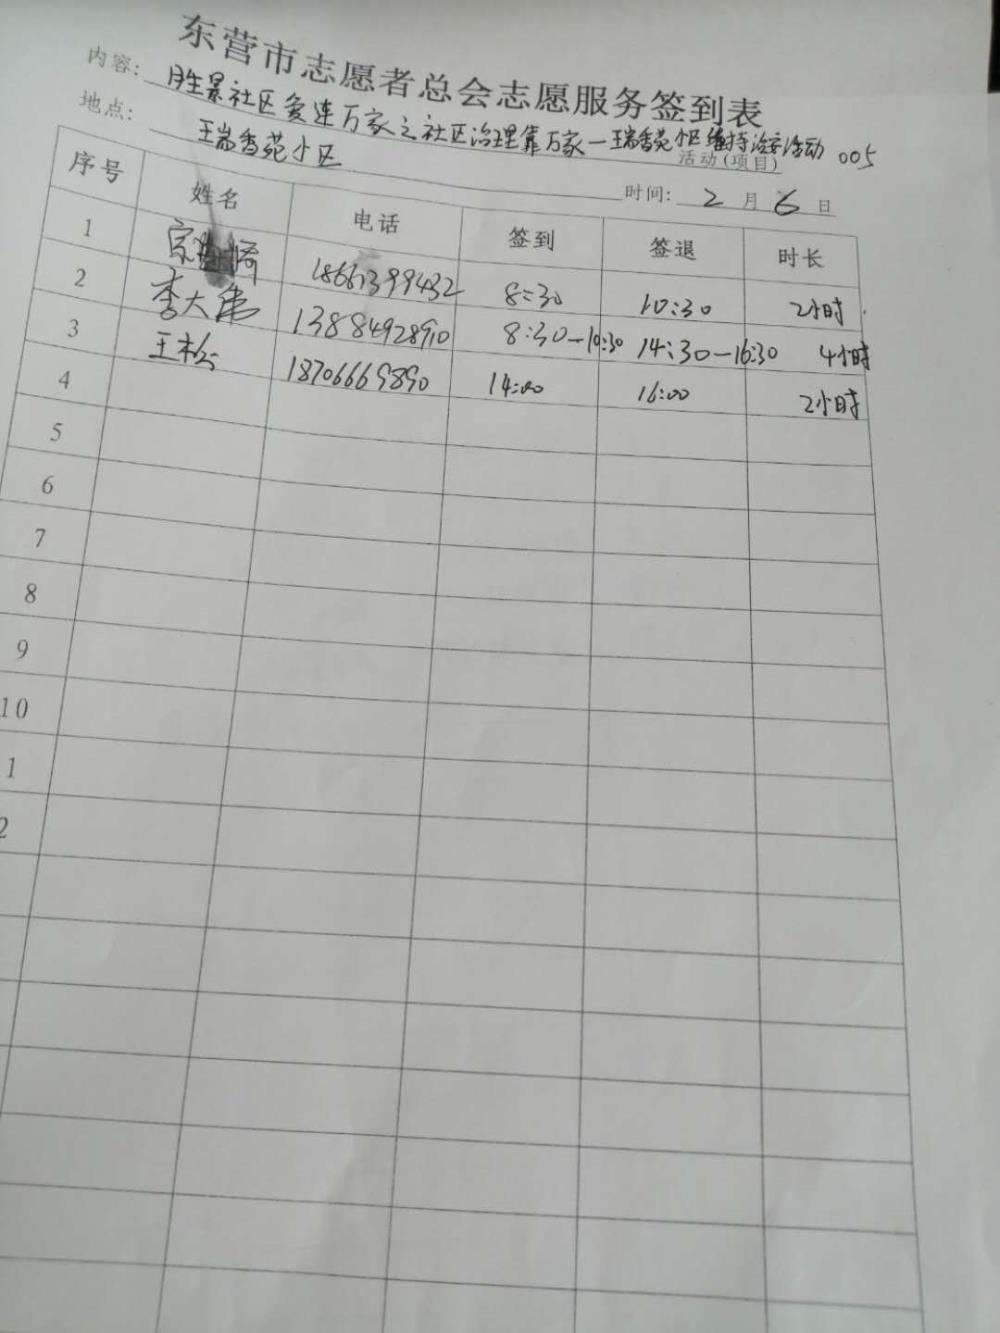 东营市志愿者总会志愿服务签到表
内容: 胜景社区爱连万家之社区治理靠万家—瑞香苑小区维持治安活动 005
活动(项目)
地点: 瑞香苑小区
时间: 2 月 6 日
序号 姓名 电话 签到 签退 时长
1 宗 18661399432 8:30 10:30 2小时
2 李大伟 13884928910 8:30-10:30 14:30-16:30 4小时
3 王松 18706669890 14:00 16:00 2小时
4
5
6
7
8
9
10
1
2